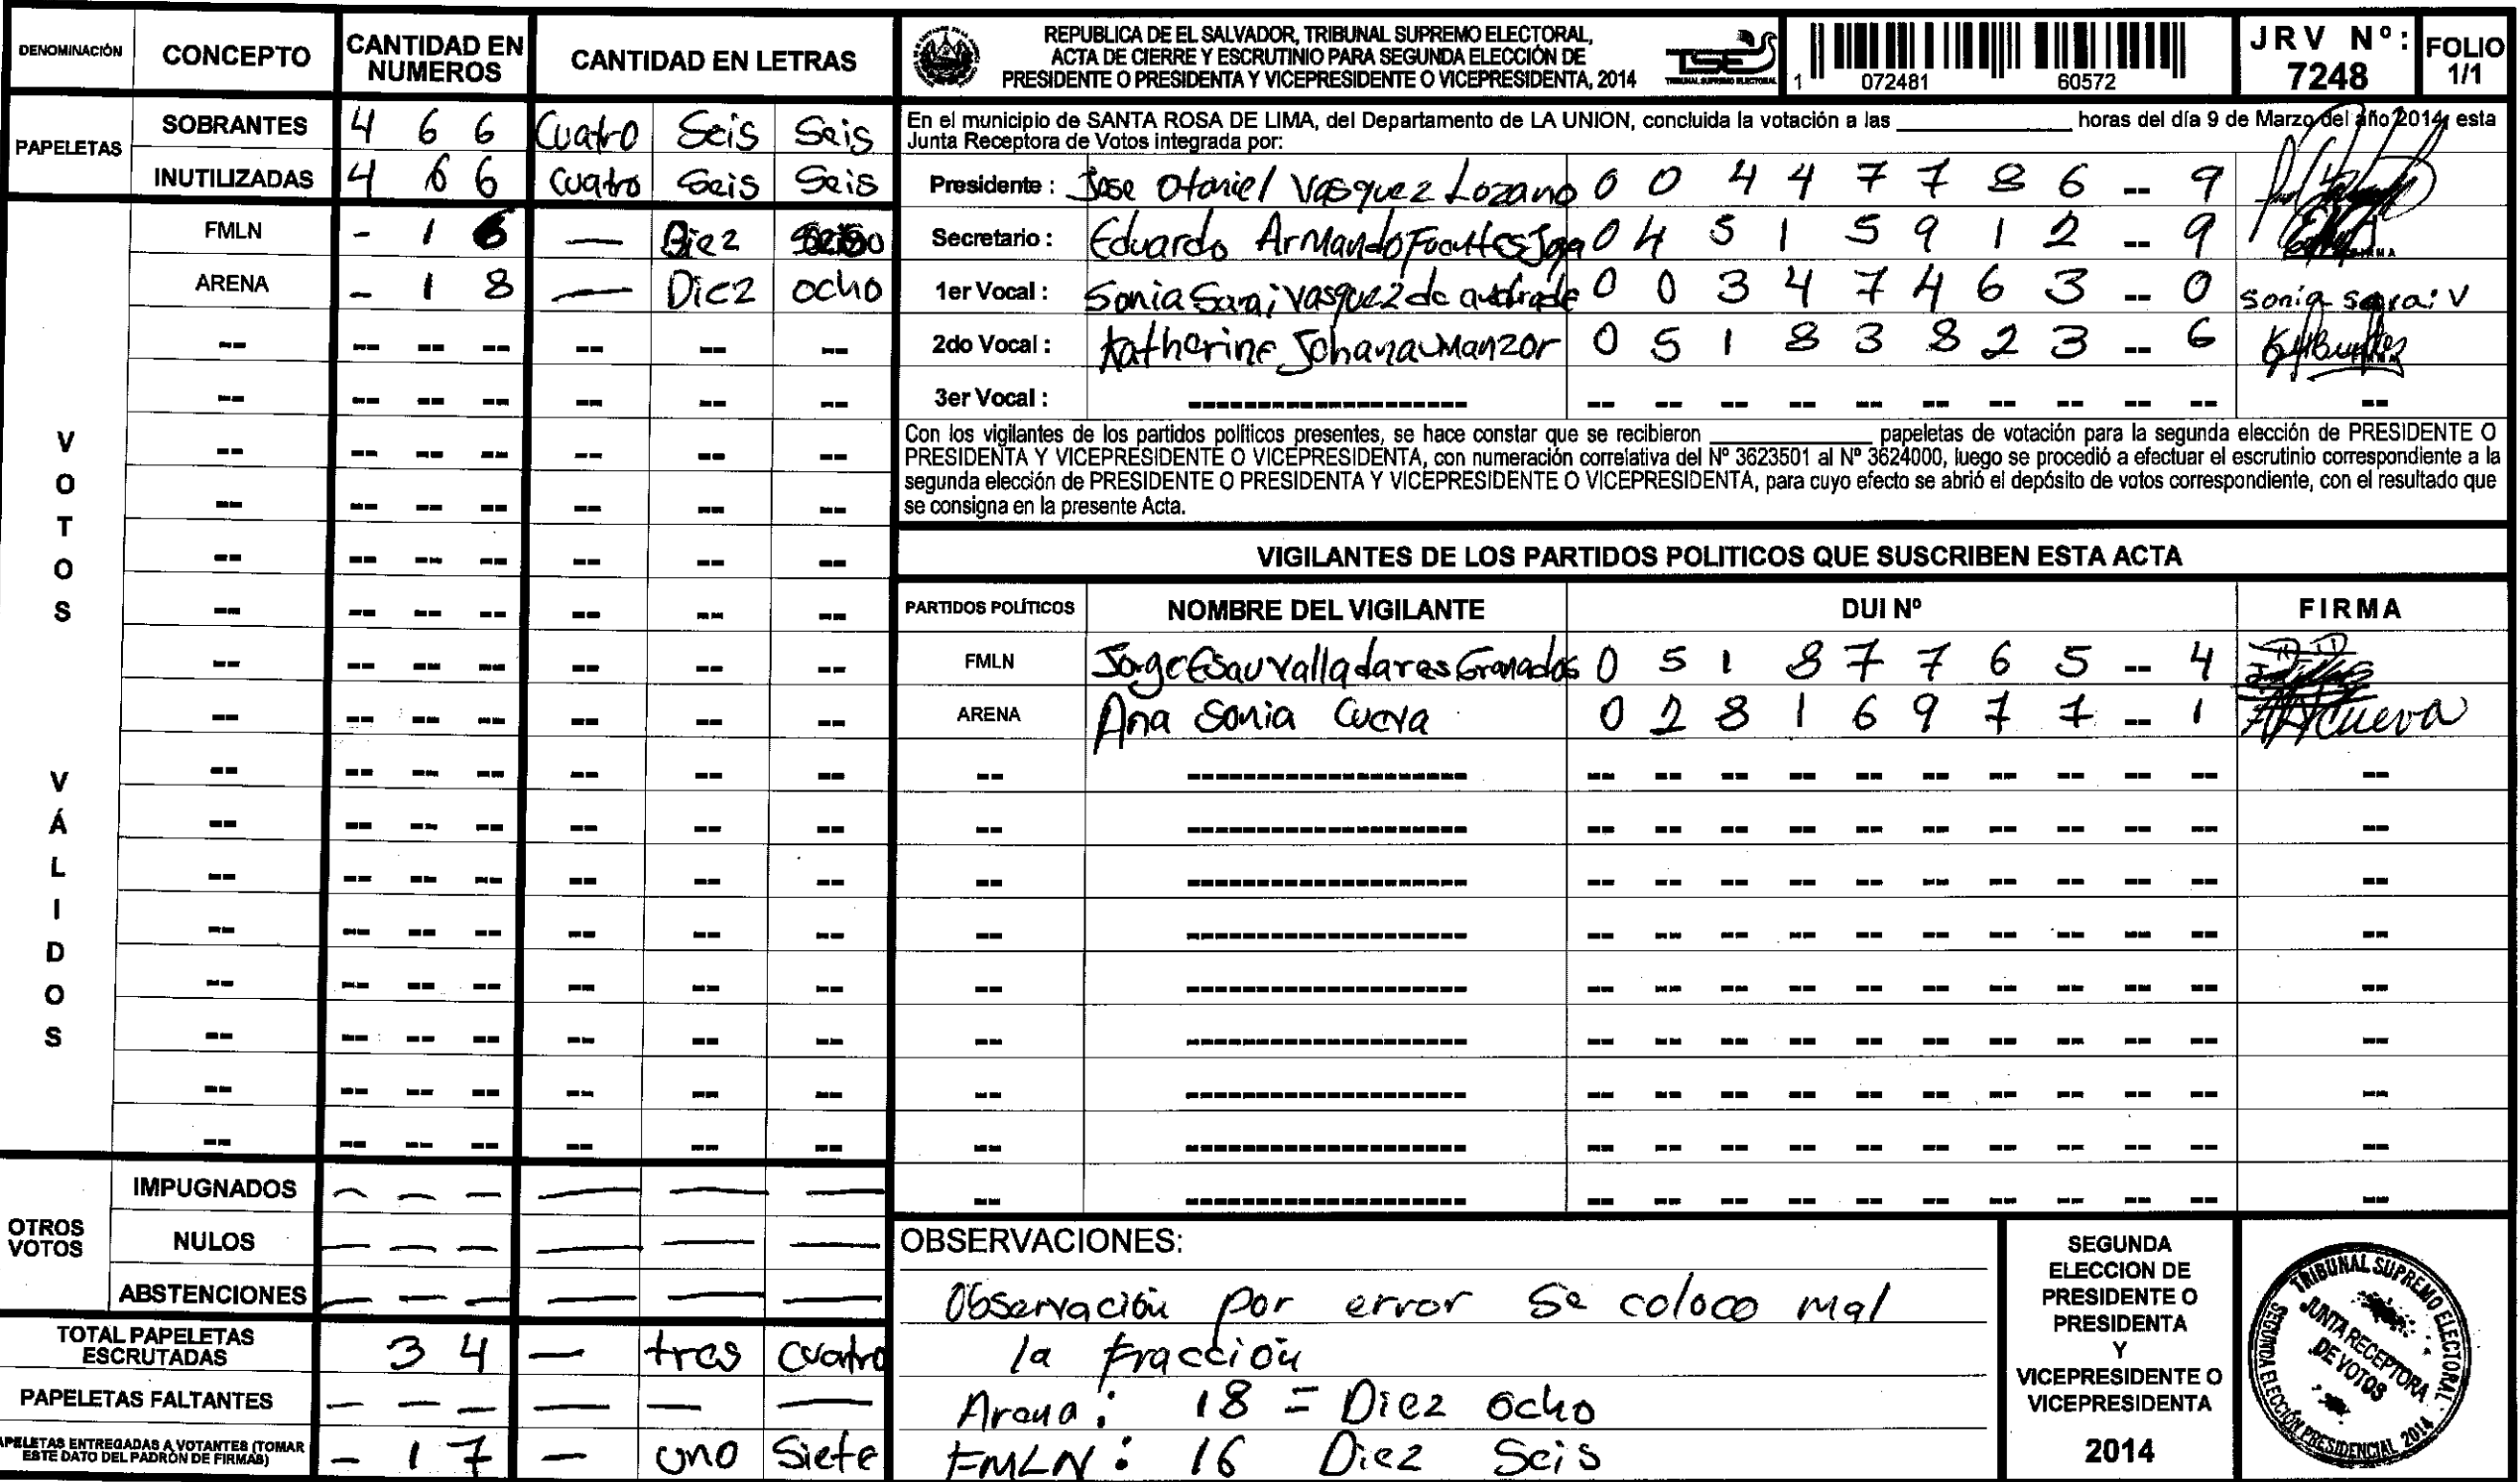 DENOMINACIÓN CONCEPTO CANTIDAD EN NUMEROS CANTIDAD EN LETRAS
PAPELETAS
SOBRANTES 4 6 6 Cuatro Seis Seis
INUTILIZADAS 4 6 6 Cuatro Seis Seis
VOTOS VÁLIDOS
FMLN - 1 6 — Diez
ARENA - 1 8 — Diez ocho
OTROS VOTOS
IMPUGNADOS — — — — — —
NULOS — — — — — —
ABSTENCIONES — — — — — —
TOTAL PAPELETAS ESCRUTADAS 3 4 — tres cuatro
PAPELETAS FALTANTES — — — — — —
PAPELETAS ENTREGADAS A VOTANTES (TOMAR ESTE DATO DEL PADRÓN DE FIRMAS) - 1 7 — uno Siete
REPUBLICA DE EL SALVADOR, TRIBUNAL SUPREMO ELECTORAL,
ACTA DE CIERRE Y ESCRUTINIO PARA SEGUNDA ELECCIÓN DE
PRESIDENTE O PRESIDENTA Y VICEPRESIDENTE O VICEPRESIDENTA, 2014
TSE
TRIBUNAL SUPREMO ELECTORAL
1 072481 60572
JRV Nº: 7248
FOLIO 1/1
En el municipio de SANTA ROSA DE LIMA, del Departamento de LA UNION, concluida la votación a las ____ horas del día 9 de Marzo del año 2014, esta
Junta Receptora de Votos integrada por:
Presidente : Jose Otoniel Vasquez Lozano 0 0 4 4 7 7 8 6 -- 9
Secretario : Eduardo Armando 0 4 5 1 5 9 1 2 -- 9
1er Vocal : Sonia Sarai Vasquez de andrade 0 0 3 4 7 4 6 3 -- 0 Sonia Sarai V
2do Vocal : Katherine Johana Manzor 0 5 1 8 3 8 2 3 -- 6
3er Vocal :
Con los vigilantes de los partidos políticos presentes, se hace constar que se recibieron ____ papeletas de votación para la segunda elección de PRESIDENTE O
PRESIDENTA Y VICEPRESIDENTE O VICEPRESIDENTA, con numeración correlativa del Nº 3623501 al Nº 3624000, luego se procedió a efectuar el escrutinio correspondiente a la
segunda elección de PRESIDENTE O PRESIDENTA Y VICEPRESIDENTE O VICEPRESIDENTA, para cuyo efecto se abrió el depósito de votos correspondiente, con el resultado que
se consigna en la presente Acta.
VIGILANTES DE LOS PARTIDOS POLITICOS QUE SUSCRIBEN ESTA ACTA
PARTIDOS POLÍTICOS NOMBRE DEL VIGILANTE DUI Nº FIRMA
FMLN Jorge Esau Valladares Granados 0 5 1 8 7 7 6 5 -- 4
ARENA Ana Sonia Cueva 0 2 8 1 6 9 7 7 -- 1 Cueva
OBSERVACIONES:
Observación por error se coloco mal
la fracción
Arena: 18 = Diez ocho
FMLN: 16 Diez Seis
SEGUNDA
ELECCION DE
PRESIDENTE O
PRESIDENTA
Y
VICEPRESIDENTE O
VICEPRESIDENTA
2014
TRIBUNAL SUPREMO ELECTORAL
JUNTA RECEPTORA
DE VOTOS
SEGUNDA ELECCIÓN PRESIDENCIAL 2014